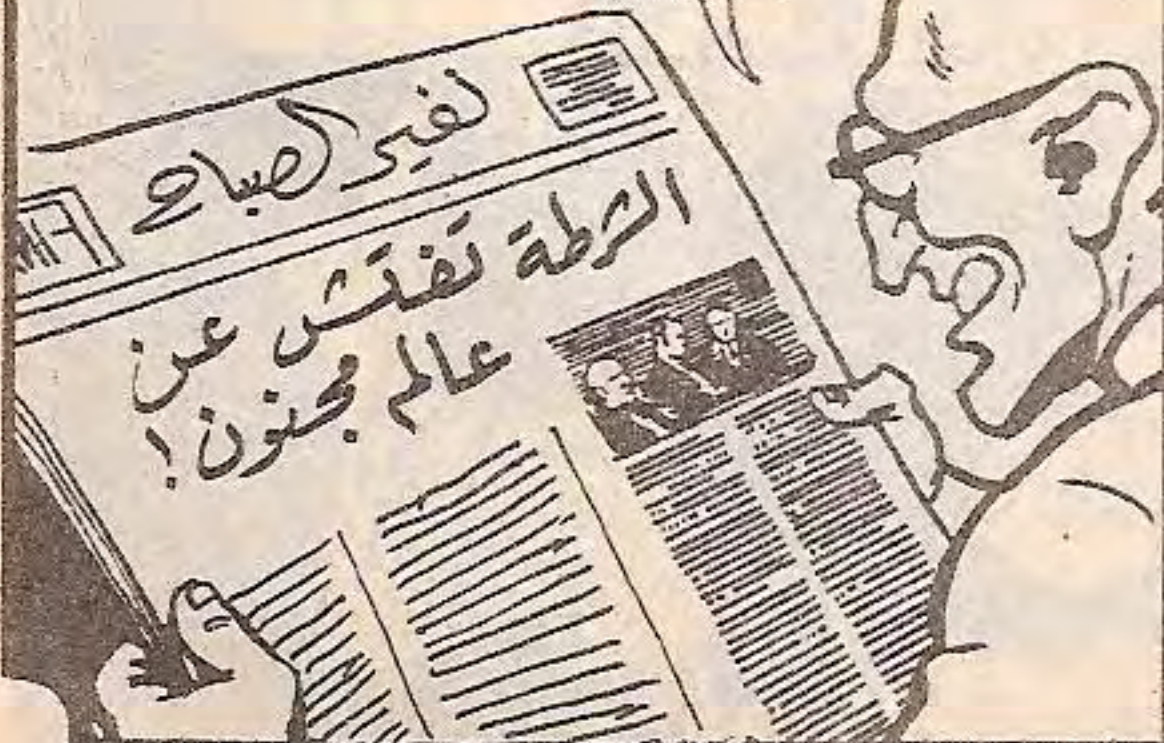 نفير الصباح
الشرطة تفتش عن
عالم مجنون!